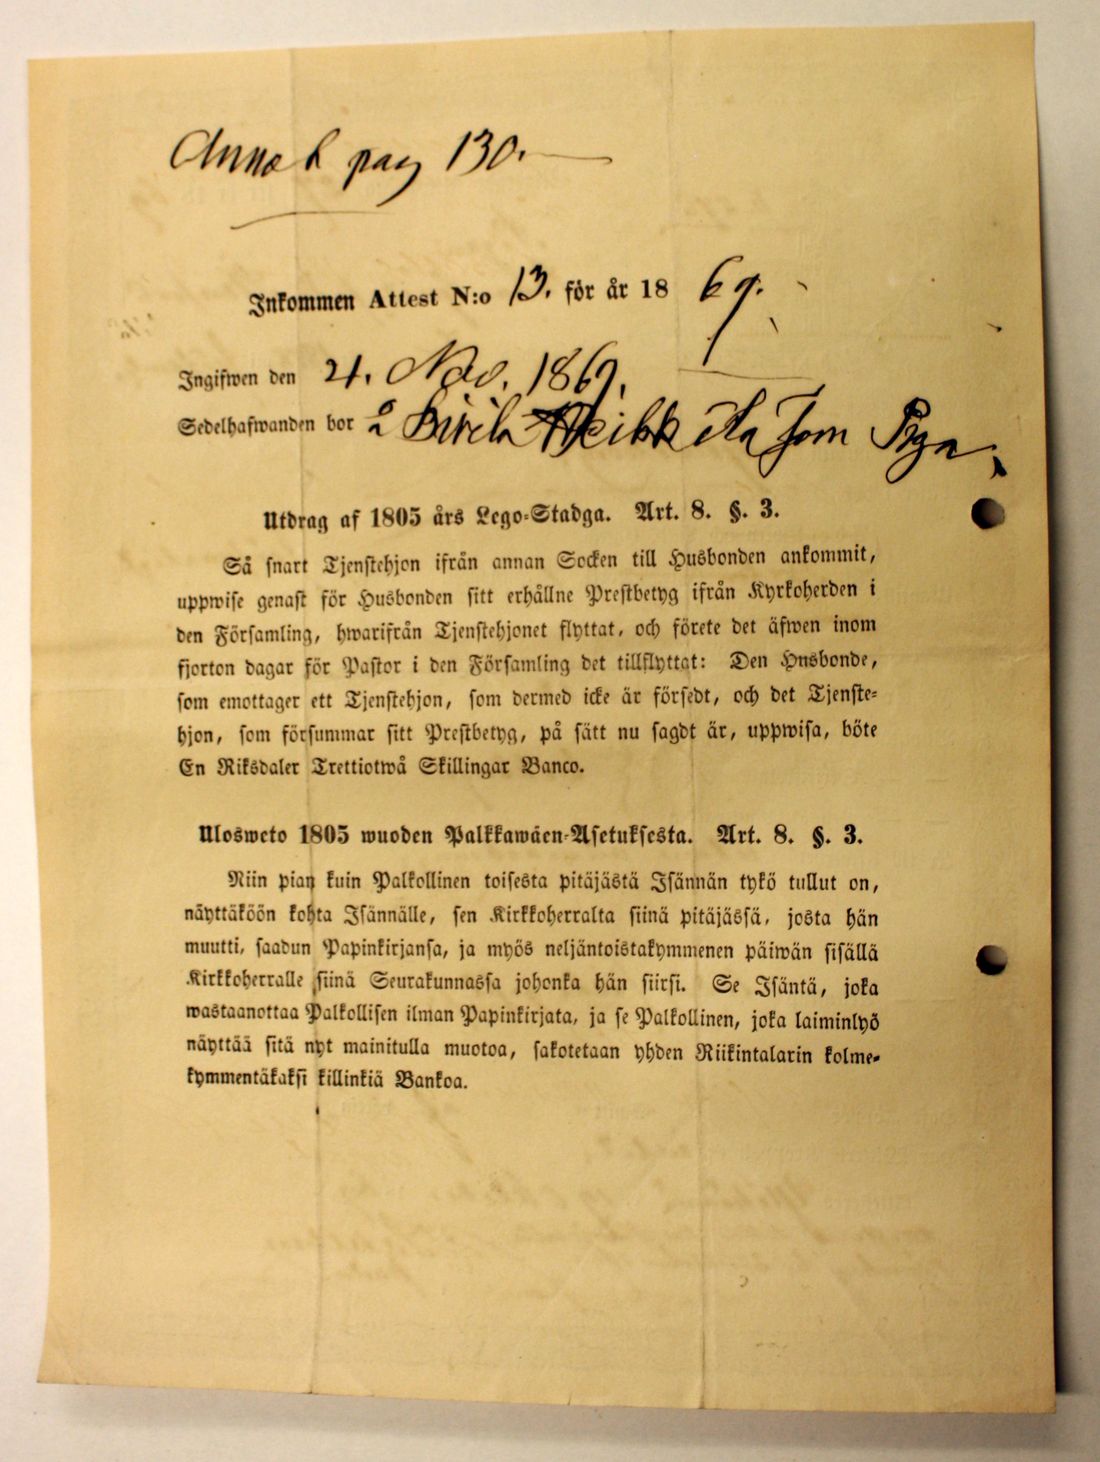 pag 130.
Inkommen Attest N:o 13. för år 18 69.
Ingifwen den 21. Nov. 1869.
Sedelhafwanden bor å Heikkilä som Piga
Utdrag af 1805 års Lego-Stadga. Art. 8. §. 3.
Så snart Tjenstehjon ifrån annan Socken till Husbonden ankommit,
uppwise genast för Husbonden sitt erhållne Prestbetyg ifrån Kyrkoherden i
den Församling, hwarifrån Tjenstehjonet flyttat, och förete det äfwen inom
fjorton dagar för Pastor i den Församling det tillflyttat: Den Husbonde,
som emottager ett Tjenstehjon, som dermed icke är försedt, och det Tjenste-
hjon, som försummar sitt Prestbetyg, på sätt nu sagdt är, uppwisa, böte
En Riksdaler Trettiotwå Skillingar Banco.
Ulosweto 1805 wuoden Palkkawäen-Asetuksesta. Art. 8. §. 3.
Niin pian kuin Palkollinen toisesta pitäjästä Isännän tykö tullut on,
näyttäköön kohta Isännälle, sen Kirkkoherralta siinä pitäjässä, josta hän
muutti, saadun Papinkirjansa, ja myös neljäntoistakymmenen päiwän sisällä
Kirkkoherralle siinä Seurakunnassa johonka hän siirsi. Se Isäntä, joka
wastaanottaa Palkollisen ilman Papinkirjata, ja se Palkollinen, joka laiminlyö
näyttää sitä nyt mainitulla muotoa, sakotetaan yhden Riikintalarin kolme-
kymmentäkaksi killinkiä Bankoa.